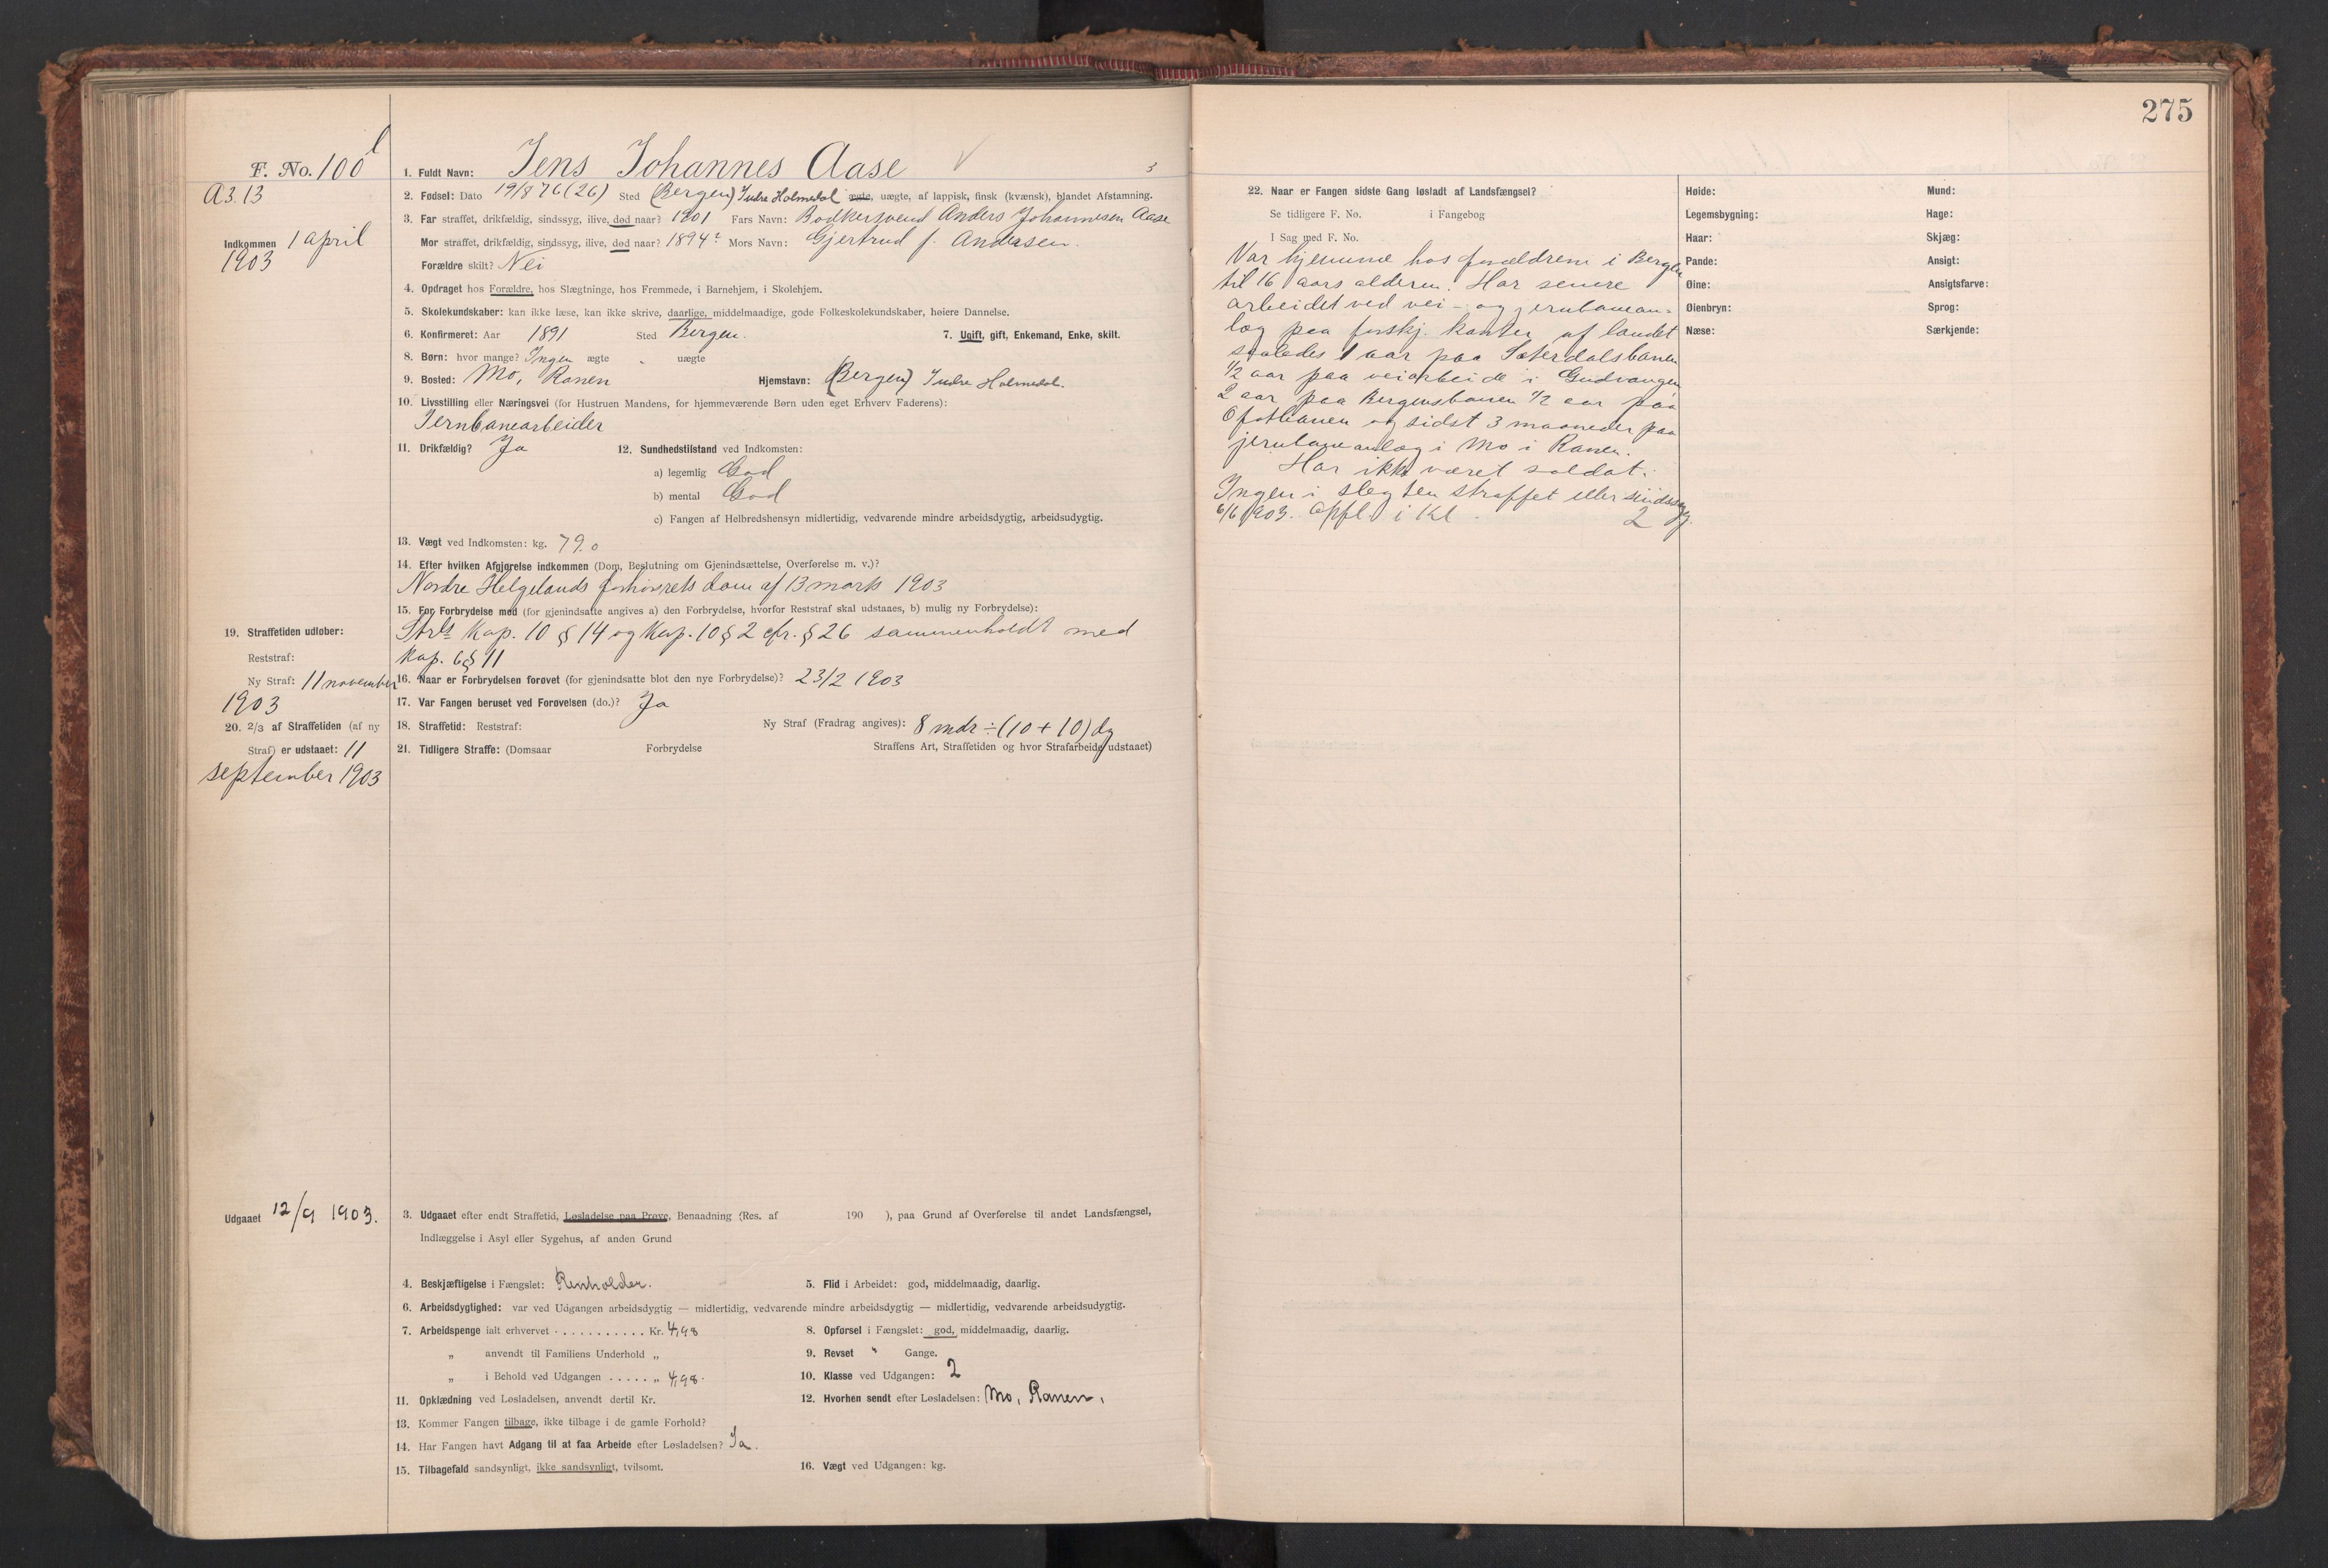 275
F. No. 100 l
A 3. 13
Indkommen 1 april
1903
1. Fuldt Navn: Jens Johannes Aase
3
2. Fødsel: Dato 19/8 76 (26) Sted (Bergen) Indre Holmedal ægte, uægte, af lappisk, finsk (kvænsk), blandet Afstamning.
3. Far straffet, drikfældig, sindssyg, ilive, død naar? 1901 Fars Navn: Bødkersvend Anders Johannesen Aase
Mor straffet, drikfældig, sindssyg, ilive, død naar? 1894? Mors Navn: Gjertrud f. Andersen.
Forældre skilt? Nei
4. Opdraget hos Forældre, hos Slægtninge, hos Fremmede, i Barnehjem, i Skolehjem.
5. Skolekundskaber: kan ikke læse, kan ikke skrive, daarlige, middelmaadige, gode Folkeskolekundskaber, høiere Dannelse.
6. Konfirmeret: Aar 1891 Sted Bergen. 7. Ugift, gift, Enkemand, Enke, skilt.
8. Børn: hvor mange? Ingen ægte " uægte
9. Bosted: Mo, Ranen Hjemstavn: (Bergen) Indre Holmedal.
10. Livsstilling eller Næringsvei (for Hustruen Mandens, for hjemmeværende Børn uden eget Erhverv Faderens):
Jernbanearbeider
11. Drikfældig? Ja 12. Sundhedstilstand ved Indkomsten:
a) legemlig God
b) mental God
c) Fangen af Helbredshensyn midlertidig, vedvarende mindre arbeidsdygtig, arbeidsudygtig.
13. Vægt ved Indkomsten: kg. 79.0
14. Efter hvilken Afgjørelse indkommen (Dom, Beslutning om Gjenindsættelse, Overførelse m. v.)?
Nordre Helgelands forhørsrets dom af 13 marts 1903
15. For Forbrydelse med (for gjenindsatte angives a) den Forbrydelse, hvorfor Reststraf skal udstaaes, b) mulig ny Forbrydelse):
Strls Kap. 10 § 14 og Kap. 10 § 2 cfr. § 26 sammenholdt med
Kap. 6 § 11
16. Naar er Forbrydelsen forøvet (for gjenindsatte blot den nye Forbrydelse)? 23/2 1903
17. Var Fangen beruset ved Forøvelsen (do.)? Ja
18. Straffetid: Reststraf: Ny Straf (Fradrag angives): 8 mdr ÷ (10 + 10) dg
21. Tidligere Straffe: (Domsaar Forbrydelse Straffens Art, Straffetiden og hvor Strafarbeide udstaaet)
19. Straffetiden udløber:
Reststraf:
Ny Straf: 11 november
1903
20. 2/3 af Straffetiden (af ny
Straf) er udstaaet: 11
september 1903
Udgaaet 12/9 1903.
3. Udgaaet efter endt Straffetid, Løsladelse paa Prøve, Benaadning (Res. af 190 ), paa Grund af Overførelse til andet Landsfængsel,
Indlæggelse i Asyl eller Sygehus, af anden Grund
4. Beskjæftigelse i Fængslet: Renholder. 5. Flid i Arbeidet: god, middelmaadig, daarlig.
6. Arbeidsdygtighed: var ved Udgangen arbeidsdygtig — midlertidig, vedvarende mindre arbeidsdygtig — midlertidig, vedvarende arbeidsudygtig.
7. Arbeidspenge ialt erhvervet . . . . . . . . . . . Kr. 4,98 8. Opførsel i Fængslet: god, middelmaadig, daarlig.
„ anvendt til Familiens Underhold „ 9. Revset " Gange.
„ i Behold ved Udgangen . . . . . „ 4,98. 10. Klasse ved Udgangen: 2
11. Opklædning ved Løsladelsen, anvendt dertil Kr. 12. Hvorhen sendt efter Løsladelsen: Mo, Ranen.
13. Kommer Fangen tilbage, ikke tilbage i de gamle Forhold?
14. Har Fangen havt Adgang til at faa Arbeide efter Løsladelsen? Ja.
15. Tilbagefald sandsynligt, ikke sandsynligt, tvilsomt. 16. Vægt ved Udgangen: kg.
22. Naar er Fangen sidste Gang løsladt af Landsfængsel?
Se tidligere F. No. i Fangebog
I Sag med F. No.
Var hjemme hos forældrene i Bergen
til 16 aars alderen. Har senere
arbeidet ved vei- og jernbanean-
læg paa forskj. kanter af landet
saaledes 1 aar paa Sæterdalsbanen
1/2 aar paa veiarbeide i Gudvangen
2 aar paa Bergensbanen 1/2 aar paa
Ofotbanen og sidst 3 maaneder paa
jernbaneanlæg i Mo i Ranen.
Har ikke været soldat.
Ingen i slegten straffet eller sindssyg.
6/6 1903. Opfl. i Kl. 2
Høide: Mund:
Legemsbygning: Hage:
Haar: Skjæg:
Pande: Ansigt:
Øine: Ansigtsfarve:
Øienbryn: Sprog:
Næse: Særkjende: